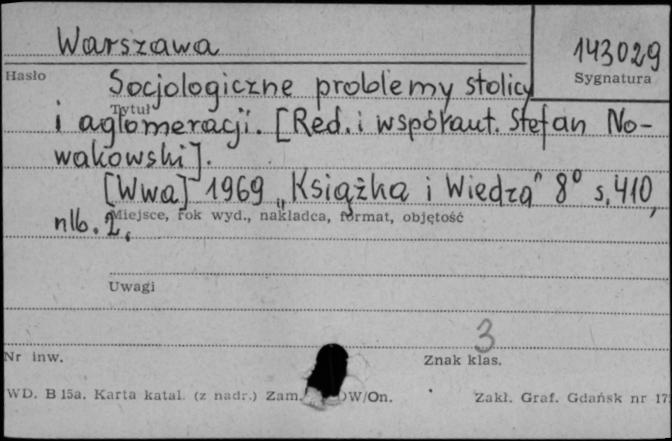 Warszawa
143029
Hasło
Sygnatura
Socjologiczne problemy stolicy
Tytuł
i aglomeracji. [Red. i współaut. Stefan No-
wakowski].
[Wwa] 1969 „Książka i Wiedza" 8° s. 410,
Miejsce, rok wyd., nakładca, format, objętość
nlb. 2.
Uwagi
3
Nr inw.
Znak klas.
WD. B 15a. Karta katal. (z nadr.) Zam. W/On.
Zakł. Graf. Gdańsk nr 17